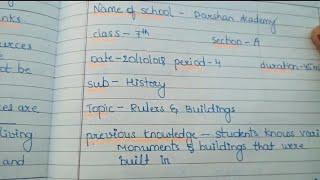 nks
ources
t be
es are
living
and
Name of school - Darshan Academy
class - 7th Section - A
Date - 20/10/018 period - 4 duration - 35 m
Sub - History
Topic - Rulers & Buildings
previous knowledge - students knows vari
Monuments & buildings that were
built in